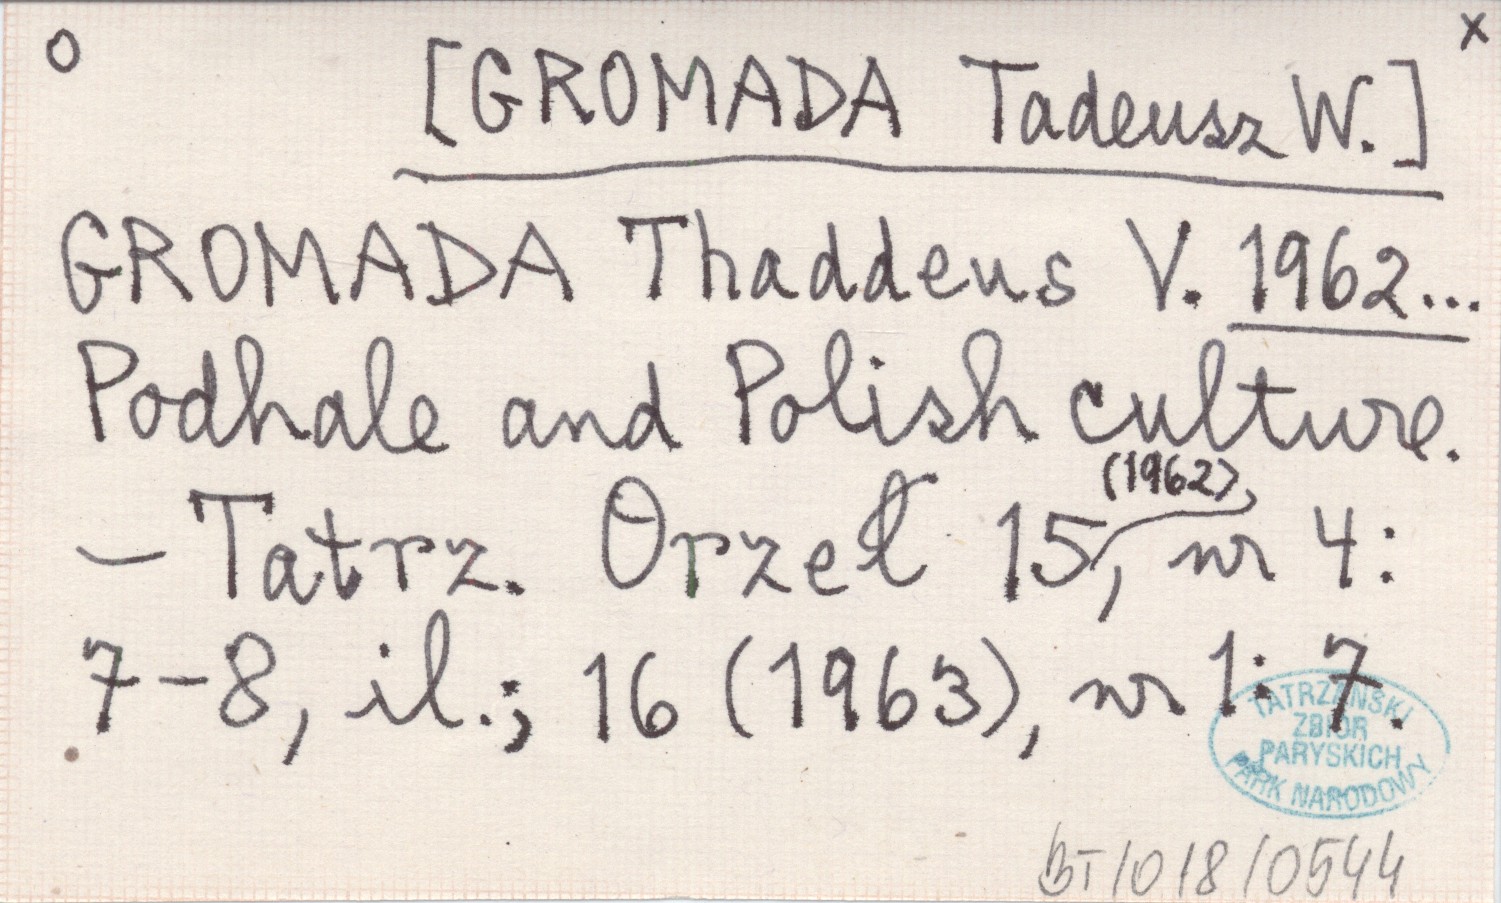 O x
[GROMADA Tadeusz W.]
GROMADA Thaddeus V. 1962...
Podhale and Polish culture.
(1962),
– Tatrz. Orzeł 15, nr 4:
7–8, il.; 16 (1963), nr 1: 7.
TATRZAŃSKI
ZBIÓR
PARYSKICH
PARK NARODOWY
BT/018/0544